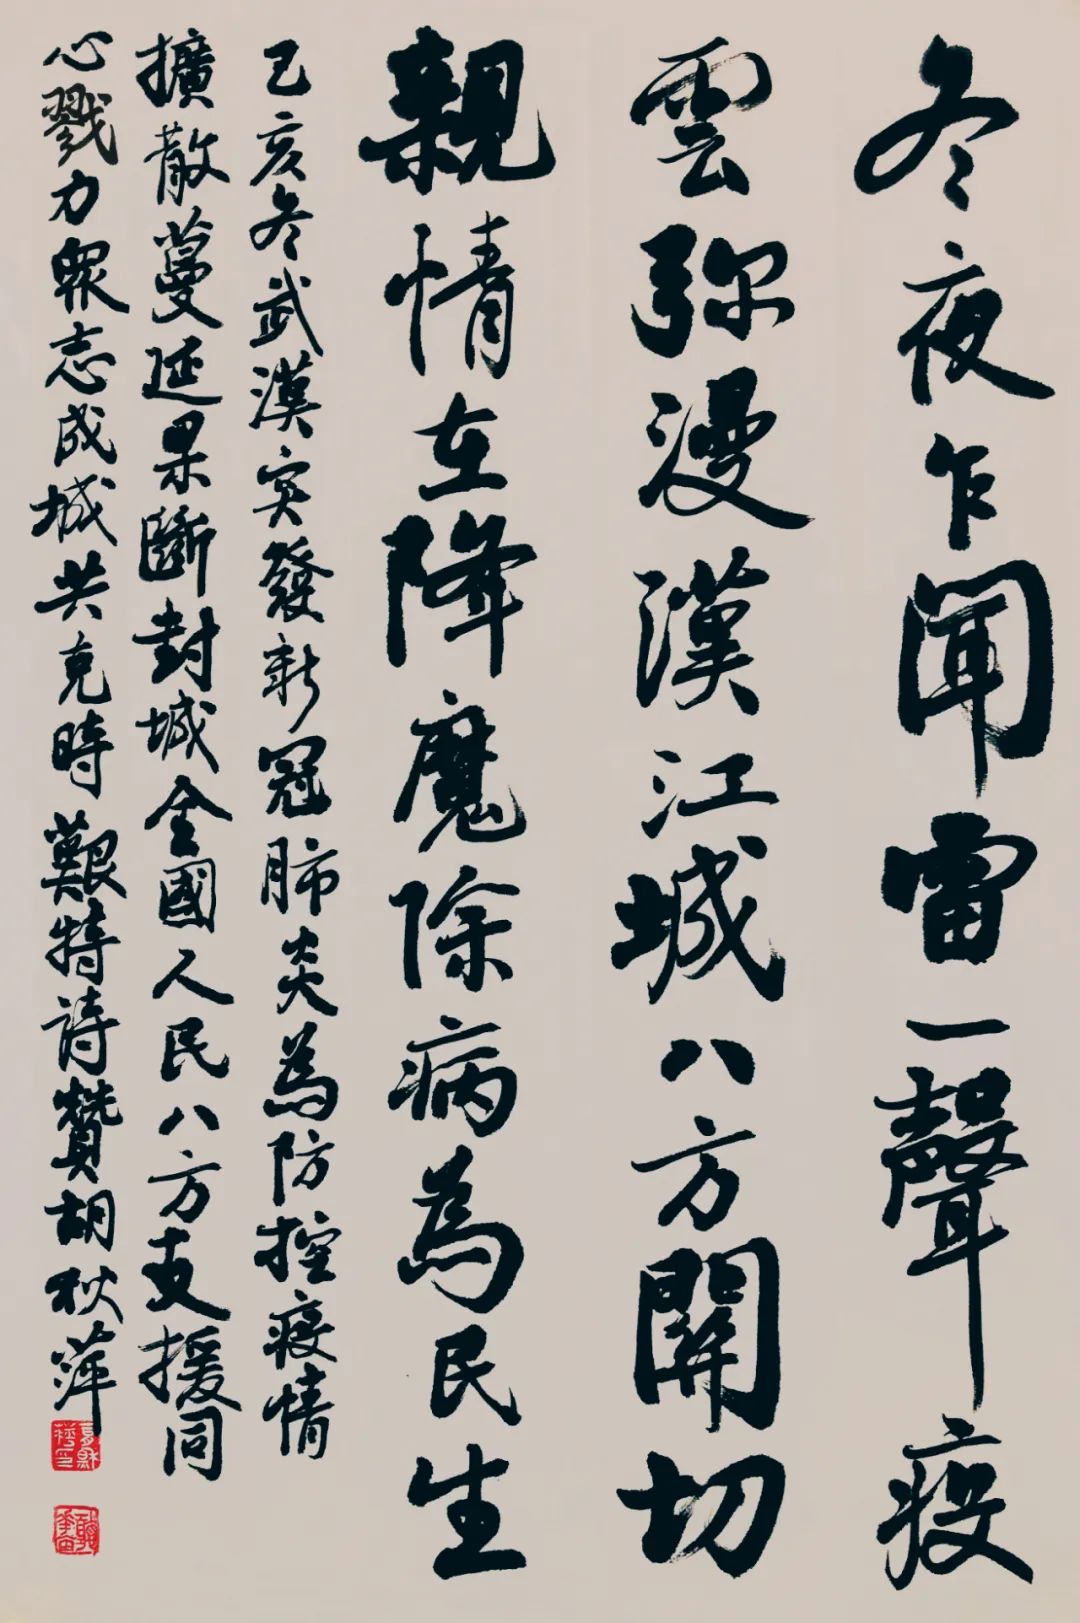 冬夜乍聞雷一聲疫
雲弥漫漢江城八方開切
親情在降魔除病為民生
己亥冬武漢突發新冠肺炎為防控疫情
擴散蔓延果斷封城全國人民八方支援同
心戮力衆志成城共克時艱特詩贊胡秋萍